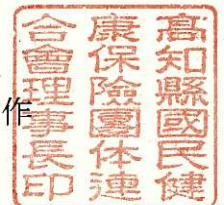 高知縣國民健
康保險團体連
合會理事長印
作